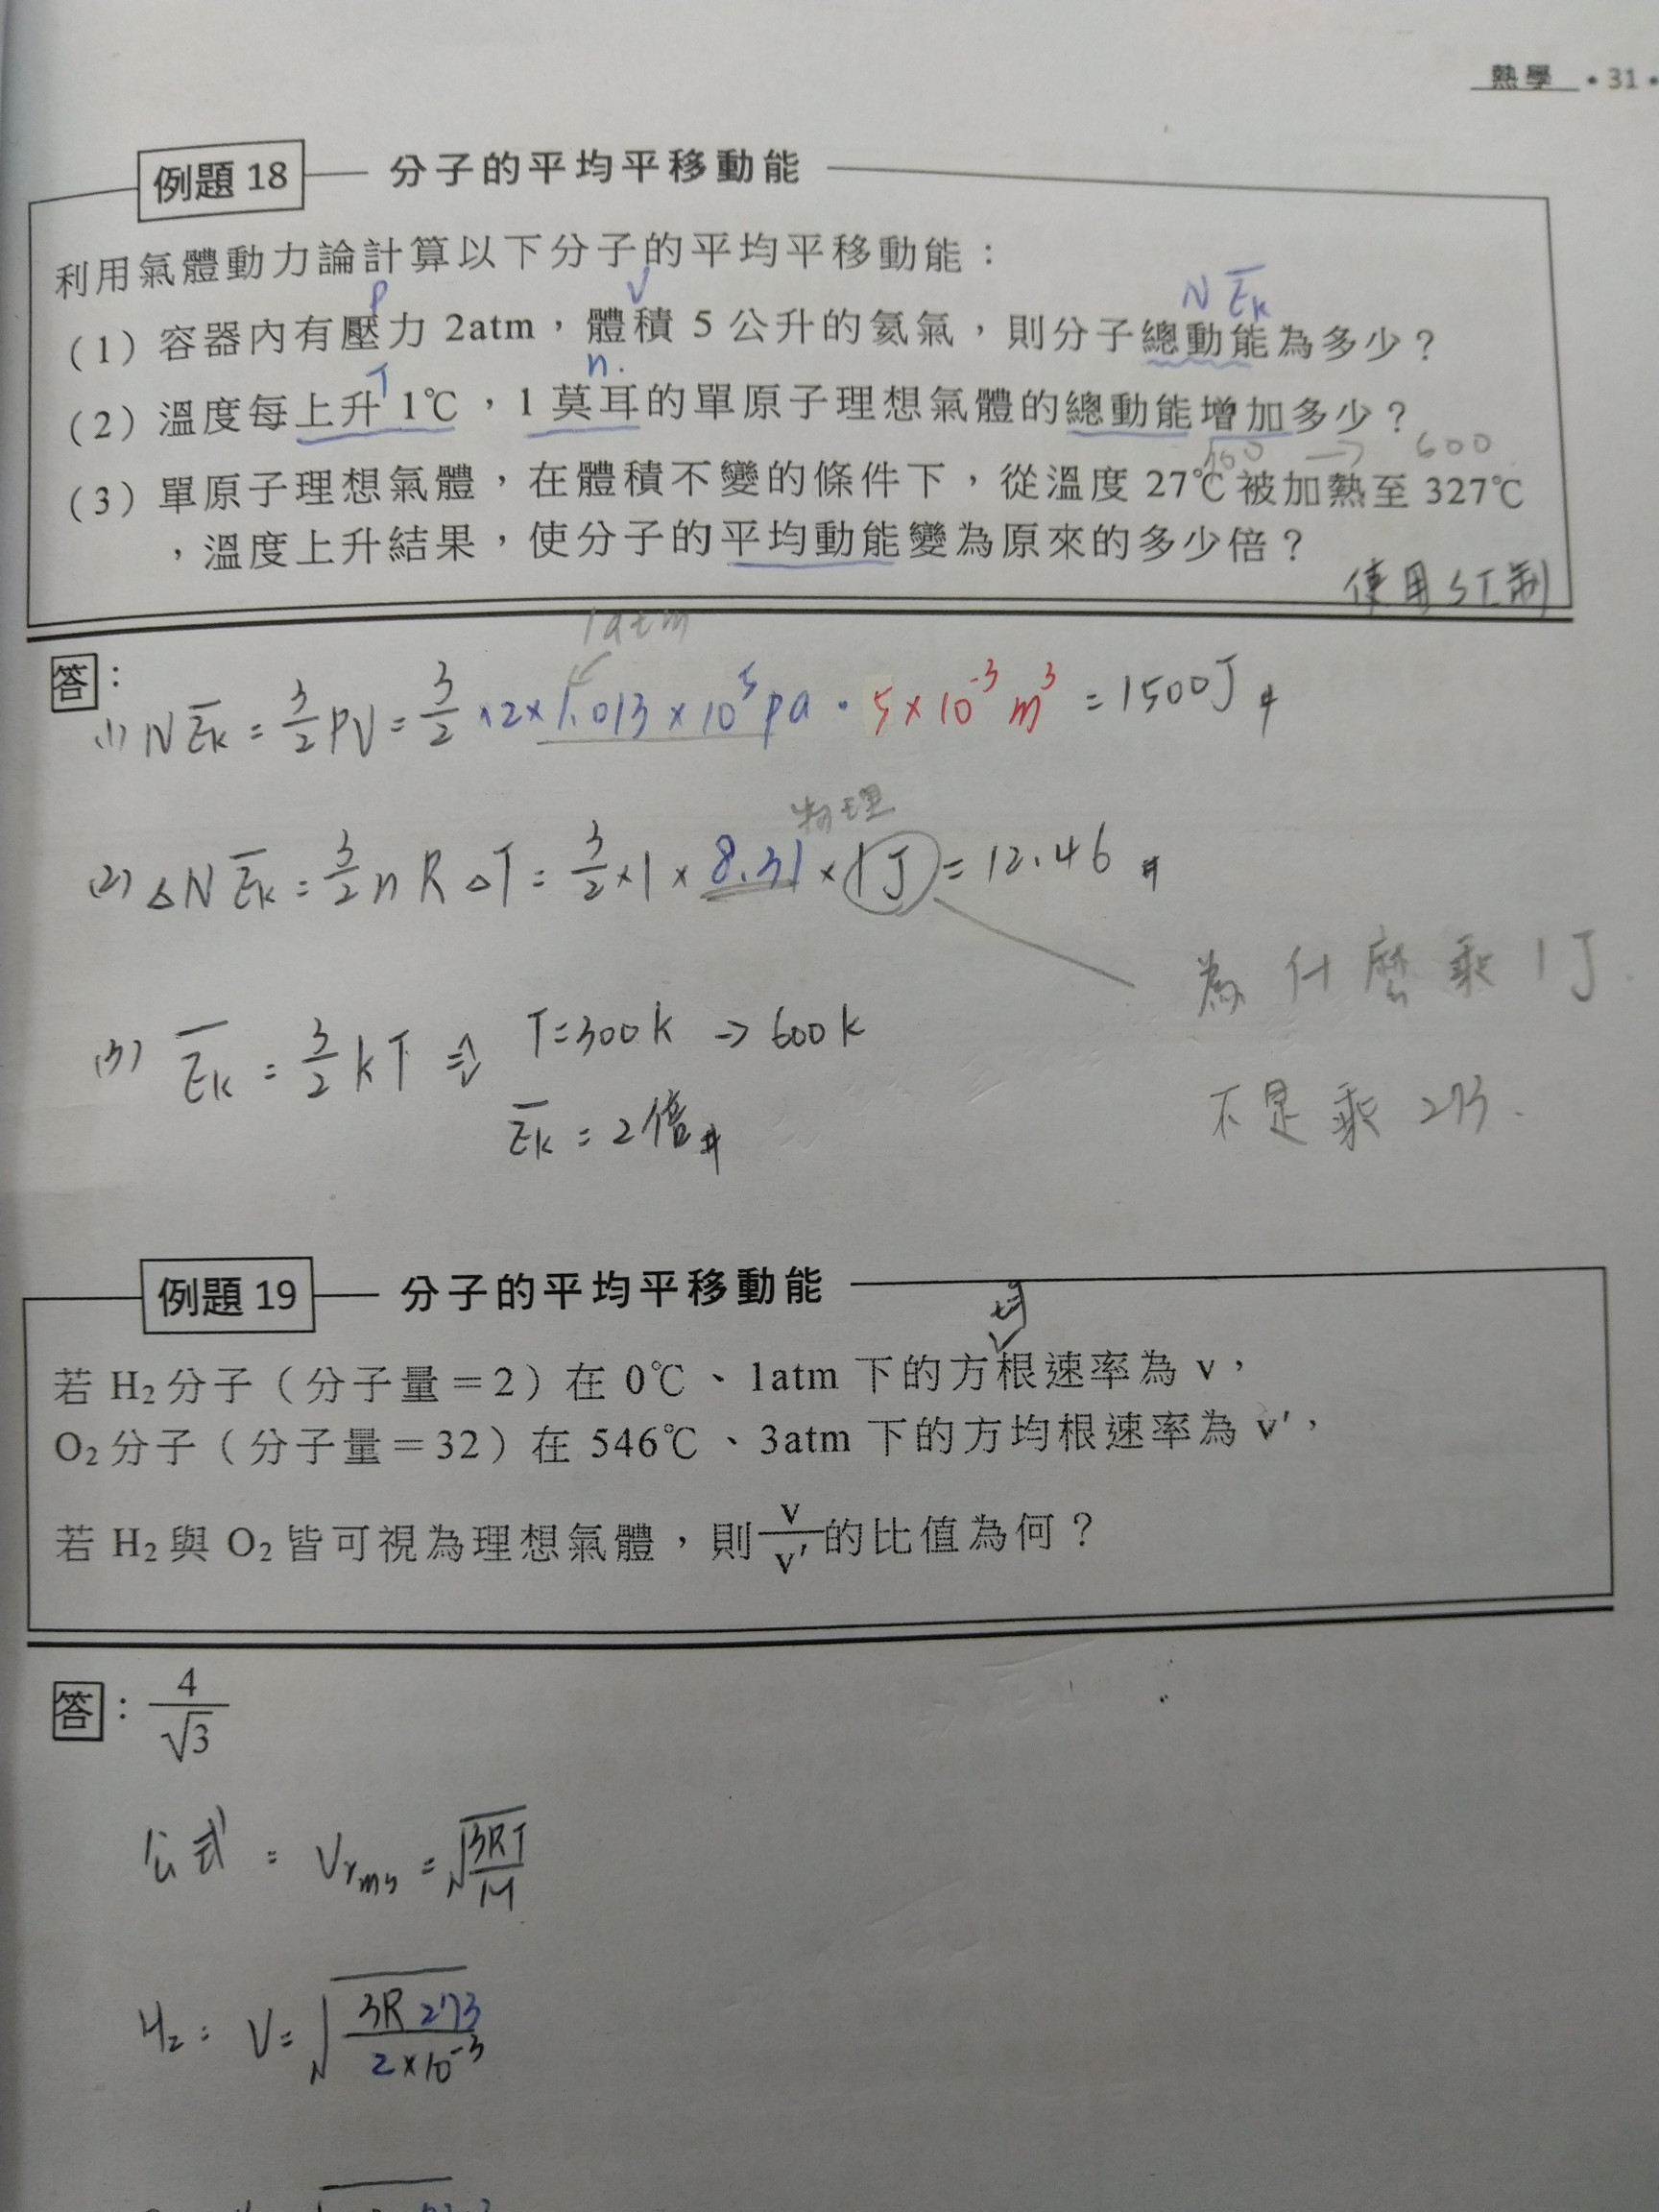 熱學 • 31 •
例題 18 分子的平均平移動能
利用氣體動力論計算以下分子的平均平移動能：
P V N E̅k
（1）容器內有壓力 2atm，體積 5 公升的氦氣，則分子總動能為多少？
T n.
（2）溫度每上升 1℃，1 莫耳的單原子理想氣體的總動能增加多少？
300 → 600
（3）單原子理想氣體，在體積不變的條件下，從溫度 27℃ 被加熱至 327℃
，溫度上升結果，使分子的平均動能變為原來的多少倍？
使用 SI 制
1atm
答：
(1) N E̅k = 3/2 PV = 3/2 × 2 × 1.013 × 10⁵ pa · 5 × 10⁻³ m³ = 1500J #
物理
(2) △N E̅k = 3/2 n R △T = 3/2 × 1 × 8.31 × 1J = 12.46 #
為什麼乘 1J.
(3) E̅k = 3/2 kT ⇒ T = 300k → 600k
E̅k = 2倍 #
不是乘 273.
例題 19 分子的平均平移動能
均
若 H₂ 分子（分子量＝2）在 0℃、1atm 下的方根速率為 v，
O₂ 分子（分子量＝32）在 546℃、3atm 下的方均根速率為 v'，
若 H₂ 與 O₂ 皆可視為理想氣體，則 v/v' 的比值為何？
答：4/√3
公式：Vrms = √(3RT/M)
H₂：V = √(3R 273/2×10⁻³)